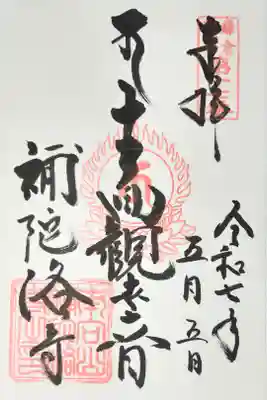 奉拝
令和七年
五月五日
十一面観世音
補陀洛寺